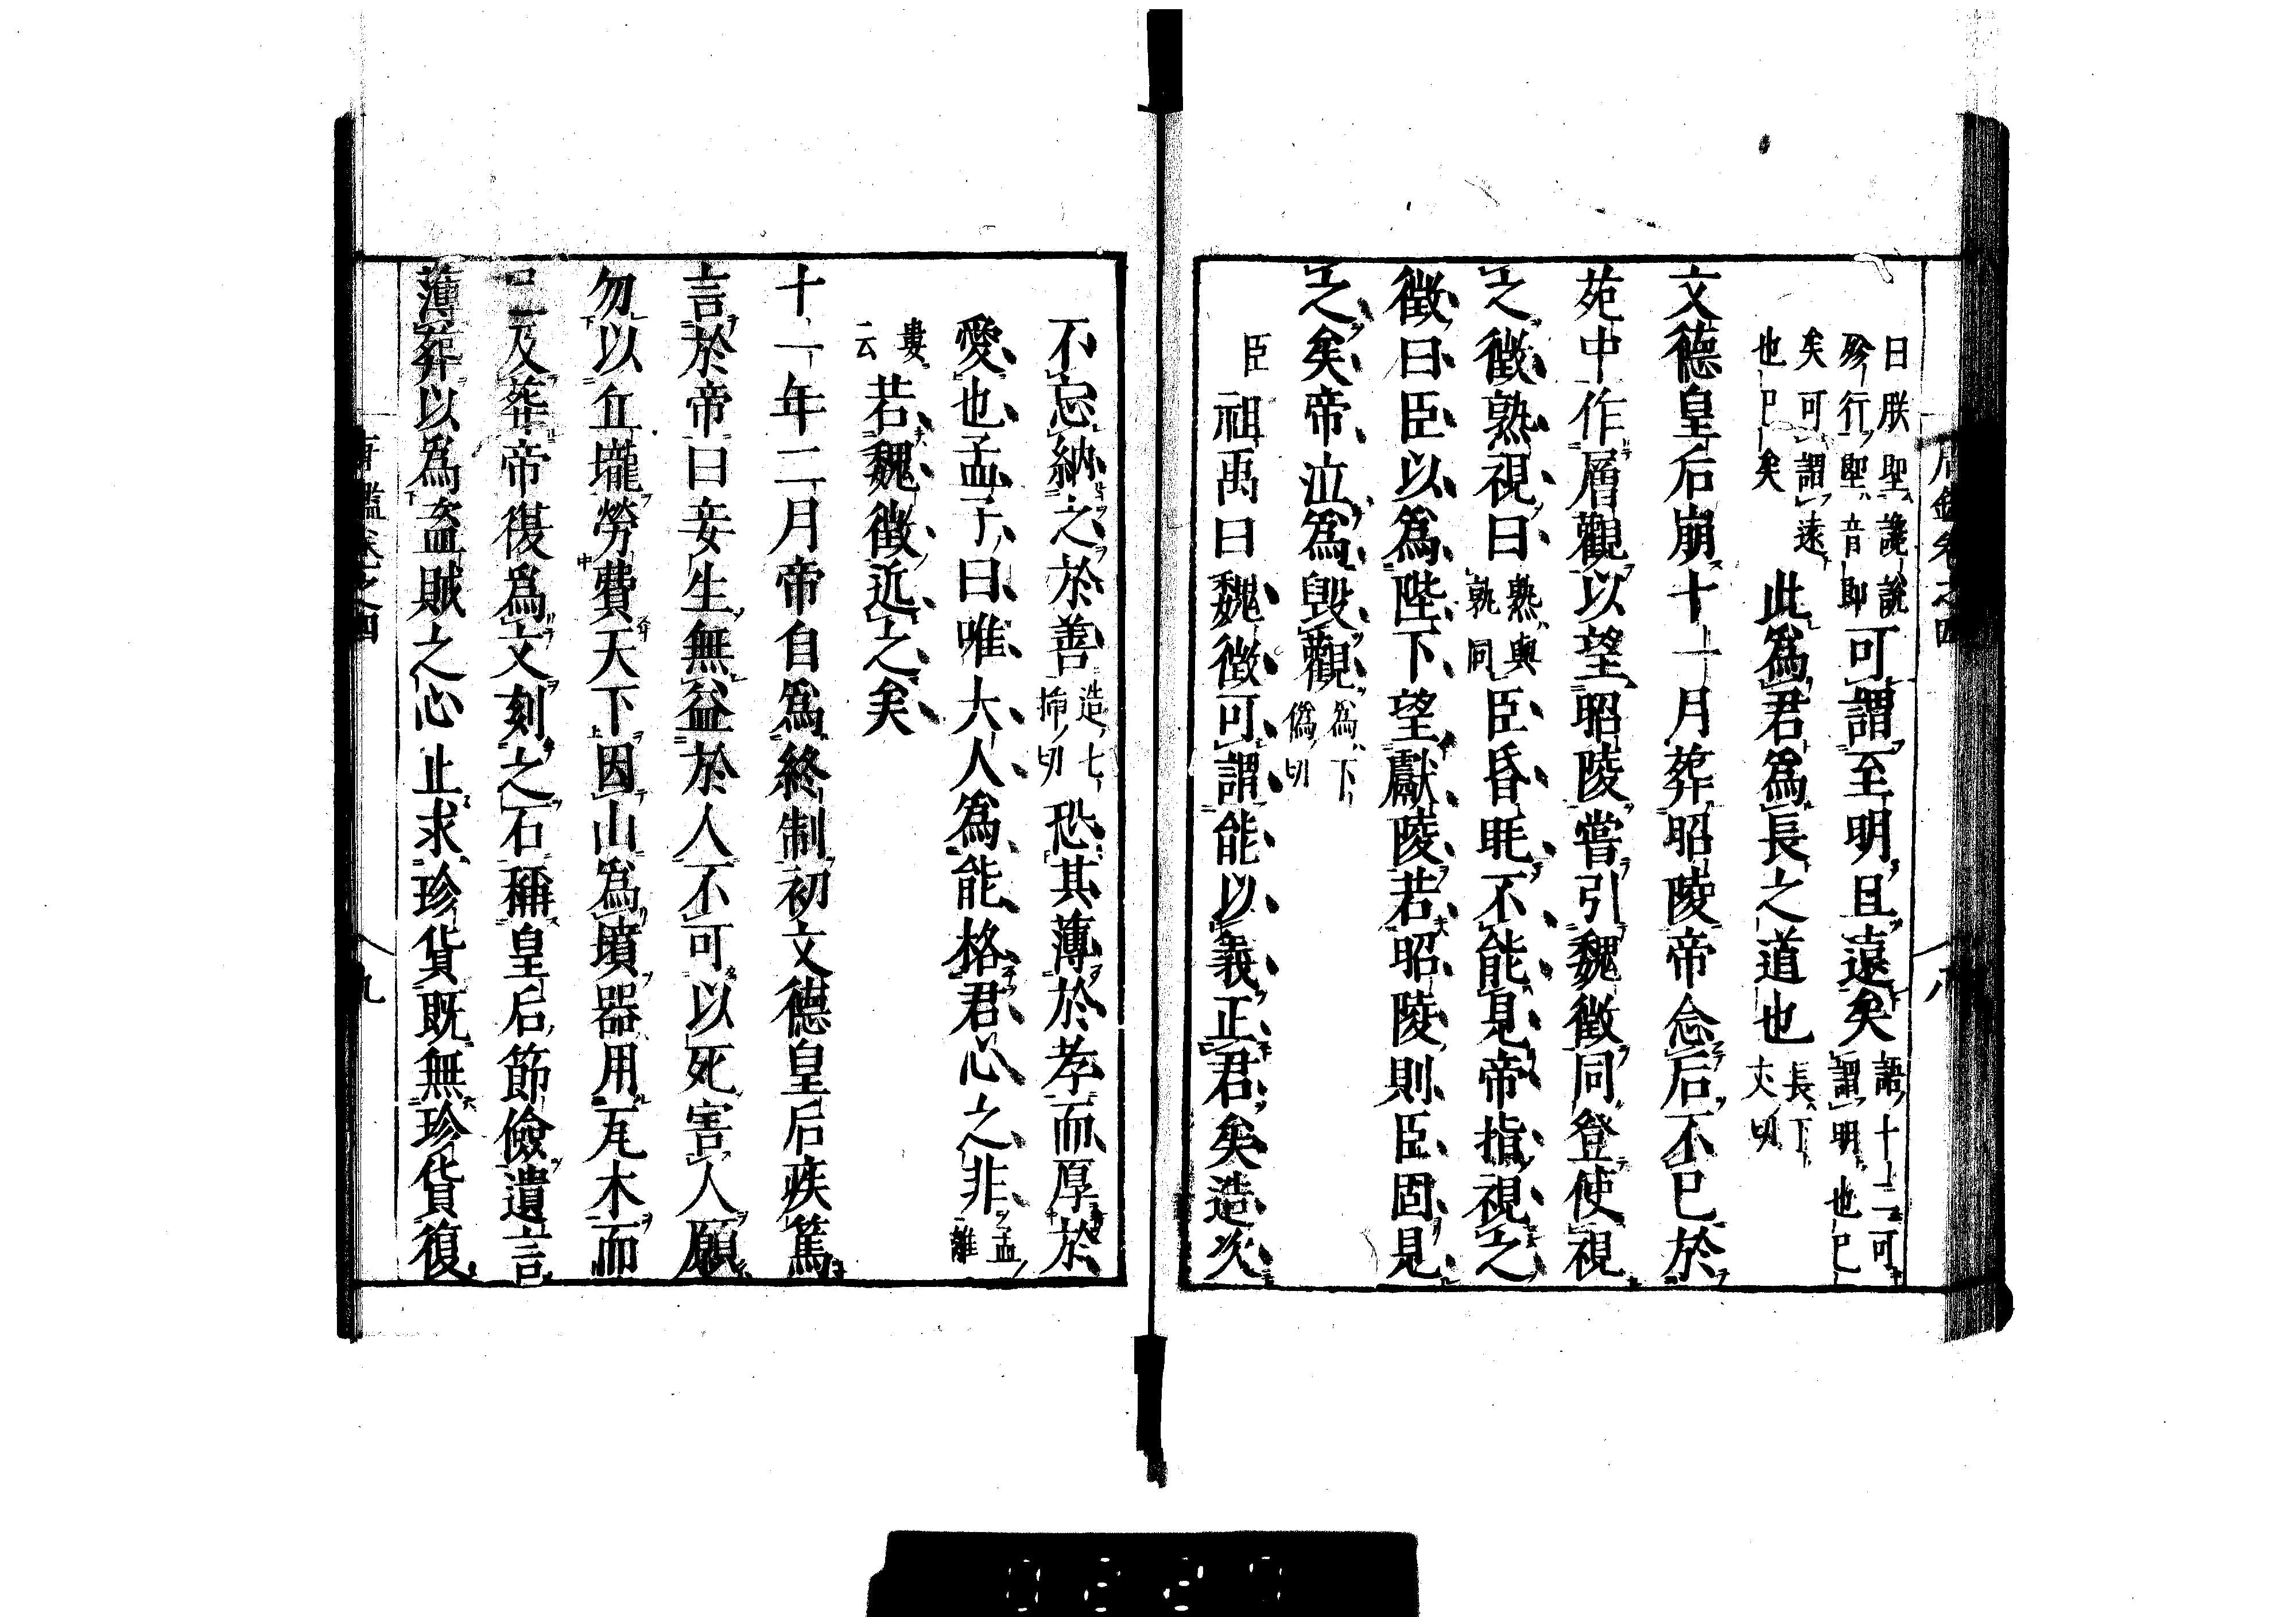 曰朕堲讒說殄行堲音即可謂至明且遠矣語十二可謂明也已
矣可謂遠也已矣此爲君爲長之道也長下丈切
文德皇后崩十一月葬昭陵帝念后不已於
苑中作層觀以望昭陵嘗引魏徵同登使視
之徵熟視曰熟與孰同臣昏眊不能見帝指視之
徵曰臣以爲陛下望獻陵若昭陵則臣固見
之矣帝泣爲毀觀爲下僞切
臣祖禹曰魏徵可謂能以義正君矣造次
不忘納之於善造七操切恐其薄於孝而厚於
愛也孟子曰唯大人爲能格君心之非孟離
婁云若魏徵近之矣
十一年二月帝自爲終制初文德皇后疾篤
言於帝曰妾生無益於人不可以死害人願
勿以丘壠勞費天下因山爲墳器用瓦木而
已及葬帝復爲文刻之石稱皇后節儉遺言
薄葬以爲盗賊之心止求珍貨既無珍貨復
唐鑑卷之四
九